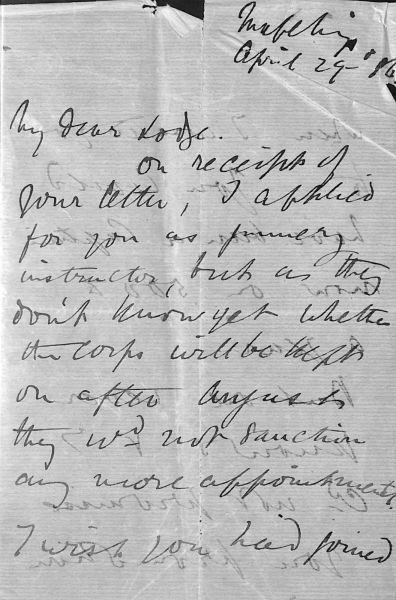 Mafeking
April 29th '86
My dear Lodge.
On receipt of
your letter, I applied
for you as gunnery
instructor, but as they
don't know yet whether
the Corps will be kept
on after August
they wd not sanction
any more appointments.
I wish you had joined